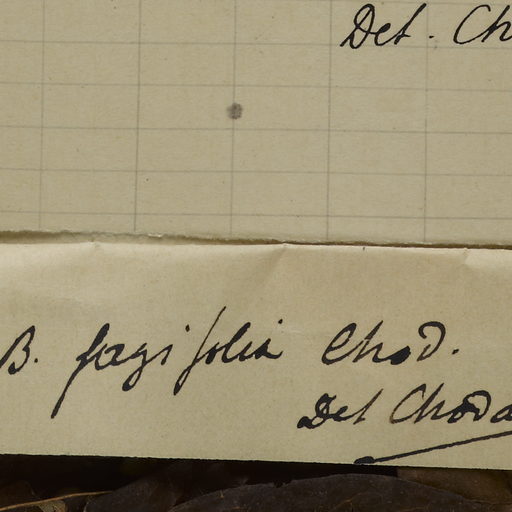 Det. Ch
B. fagifolia Chod.
Det Choda